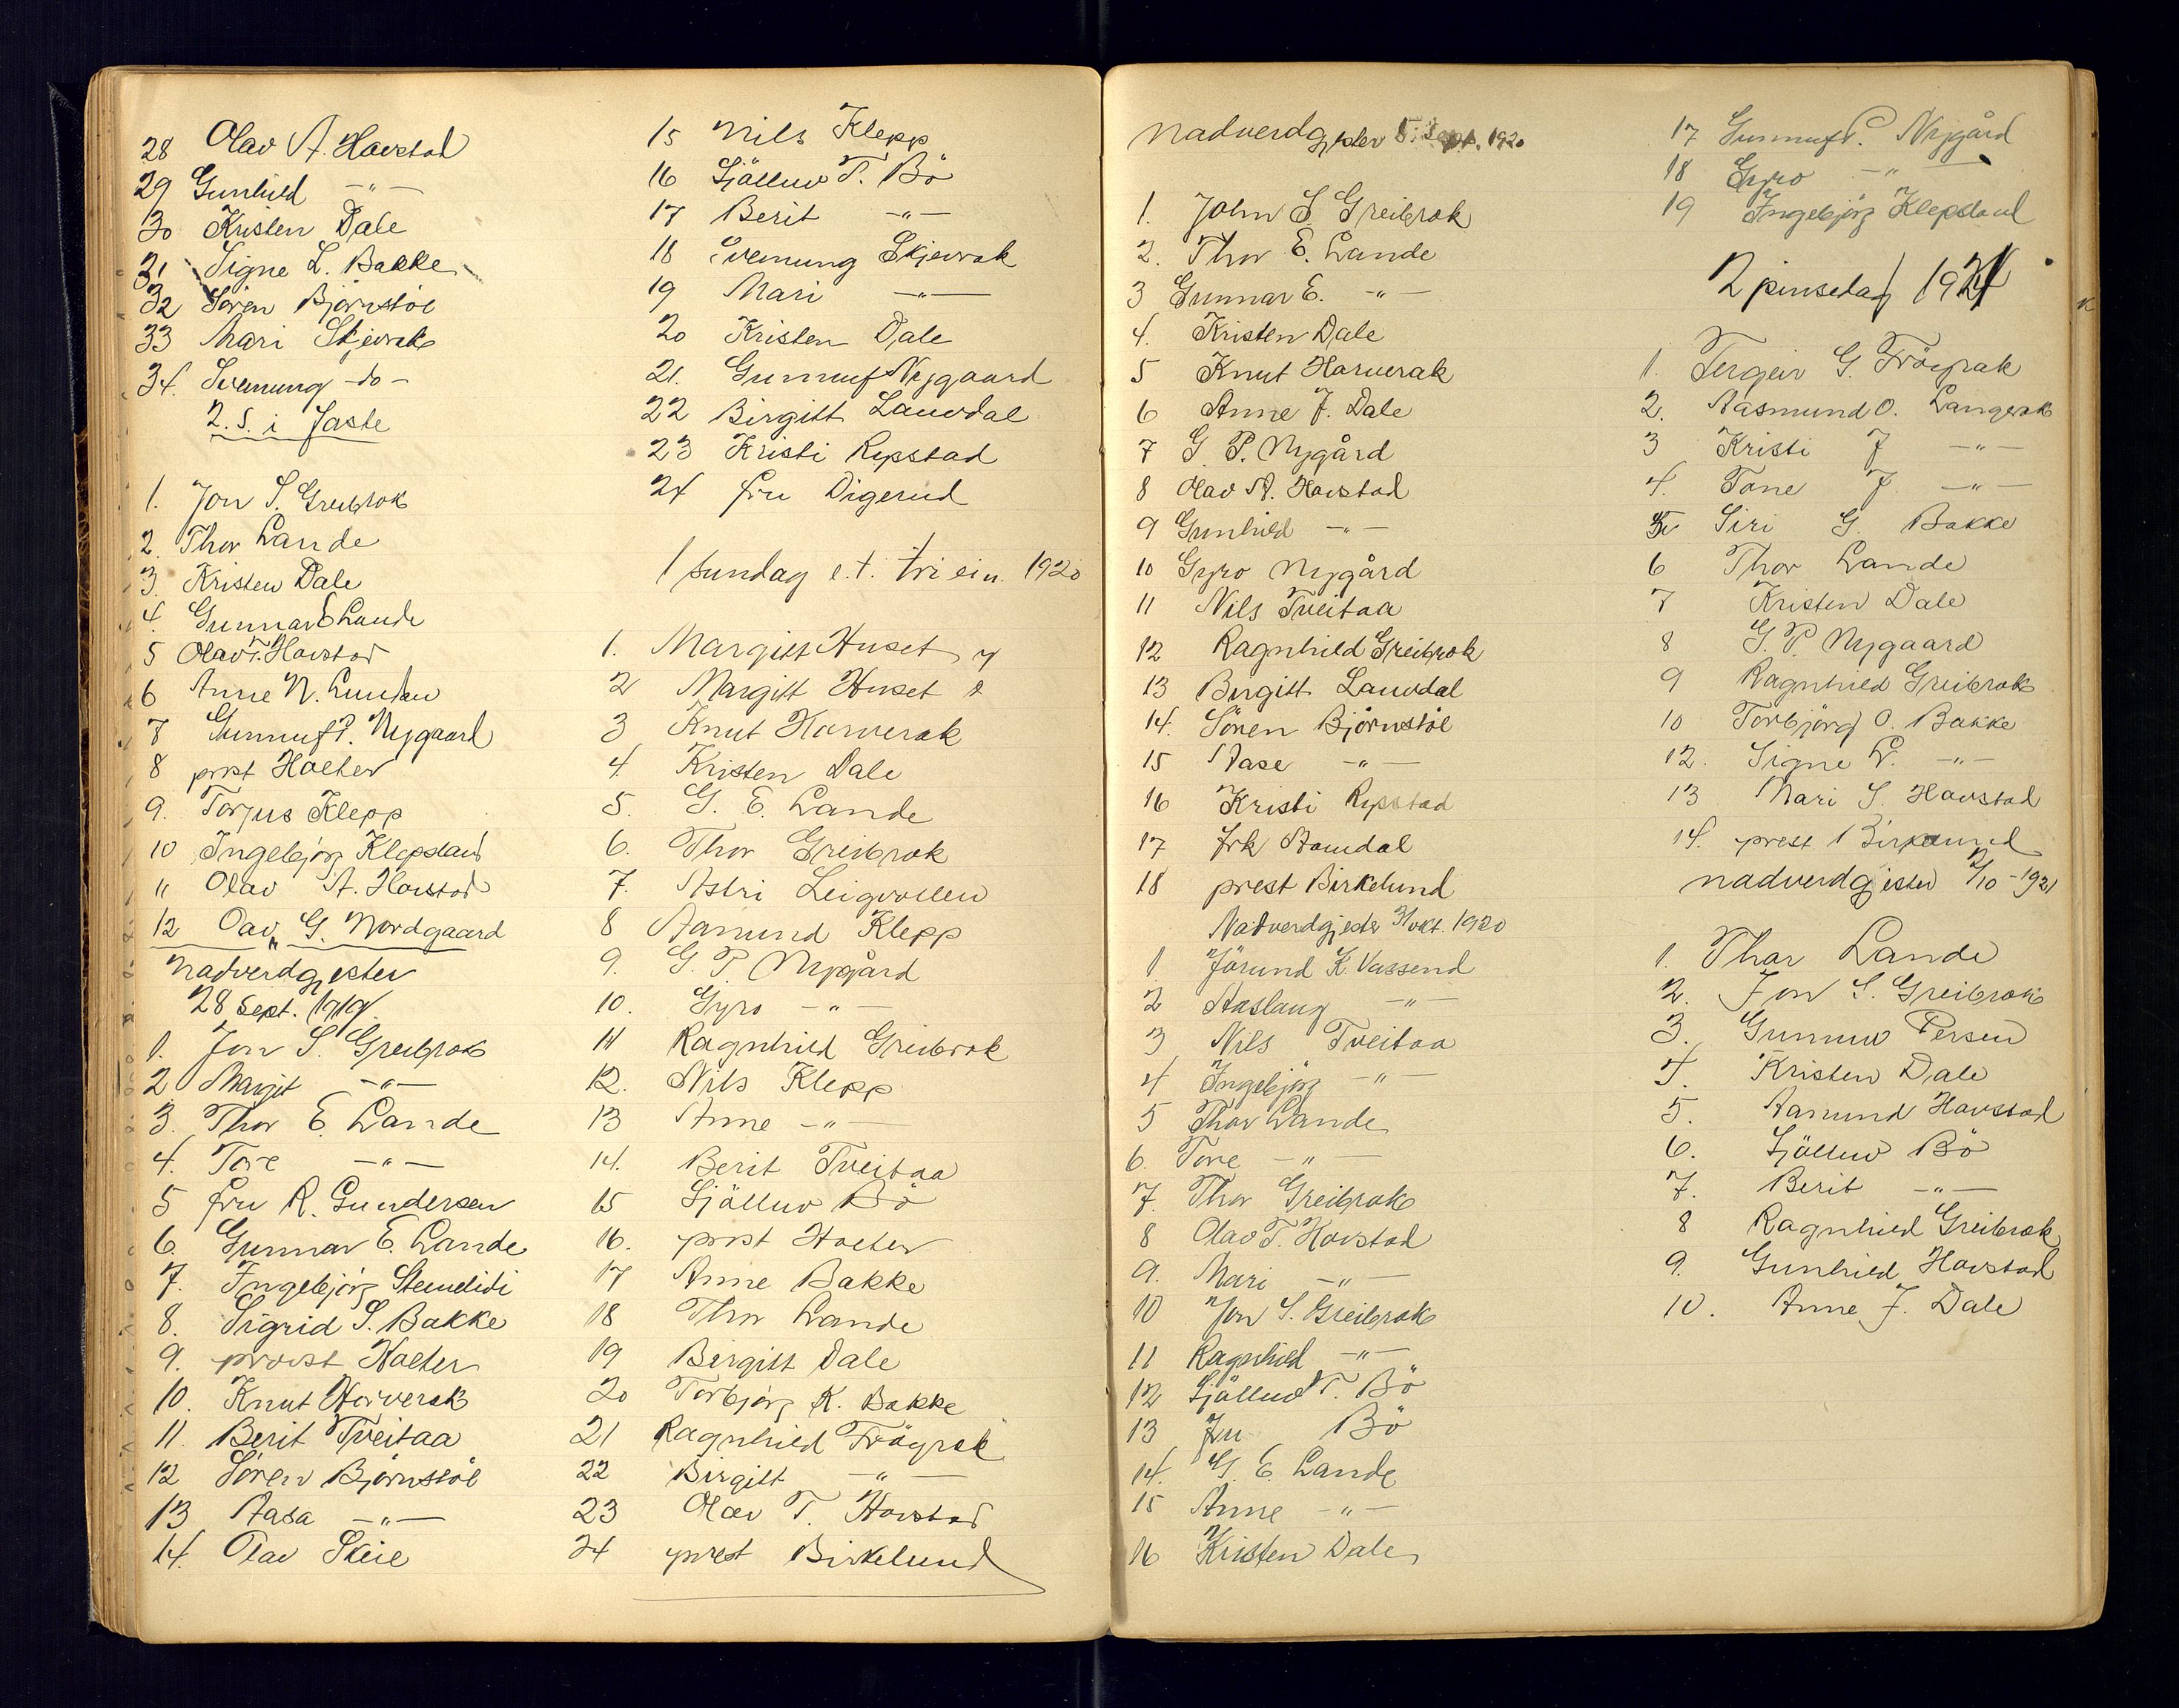 28 Olav A. Havstad
29 Gunhild -"-
30 Kristen Dale
31 Signe L. Bakke
32 Sören Björnstöl
33 Mari Skjevrak
34. Svenung -do-
2. S. i Faste
1. Jon S. Greibrok
2. Thor Lande
3. Kristen Dale
4. Gunnar E Lande
5 Olav T. Havstad
6 Anne N.
7 Gunnuf P. Nygaard
8 prost Holter
9. Torjus Klepp
10 Ingebjörg Klepsland
11 Olav A. Havstad
12 Oav G. Nordgaard
Nadverdgjester
28 Sept. 1919.
1. Jon S. Greibrok
2 Margit -"-
3. Thor E. Lande
4. Tore -"-
5 fru R. Gundersen
6. Gunnar E. Lande
7. Ingebjörg
8. Sigrid S. Bakke
9. provst Holter
10. Knut Harverak
11. Berit Tveitaa
12 Sören Björnstöl
13 Aasa -"-
14. Olav Skeie
15 Nils Klepp
16 Sjölluv T. Bö
17 Berit -"-
18 Svenung Skjevrak
19 Mari -"-
20 Kristen Dale
21. Gunnuf Nygaard
22 Birgitt Lauvdal
23 Kristi Rypstad
24 fru Digerud
1 sundag e. t. triein. 1920
1. Margitt Huset y
2 Margitt Huset e
3 Knut Harverak
4. Kristen Dale
5. G. E. Lande
6. Thor Greibrok
7. Astri Leigvollen
8 Aamund Klepp
9. G. P. Nygård
10. Gyro -"-
11 Ragnhild Greibrok
12. Nils Klepp
13 Anne -"-
14. Berit Tveitaa
15 Sjölluv Bö
16. prost Holter
17 Anne Bakke
18 Thor Lande
19 Birgitt Dale
20 Torbjörg K. Bakke
21 Ragnhild Fröyrak
22 Birgitt -"-
23 Olav T. Havstad
24 prest Birkelund
Nadverdgjester 5. Sept. 1920
1. John S. Greibrok
2. Thor E. Lande
3 Gunnar E. -"-
4. Kristen Dale
5 Knut Harverak
6 Anne J. Dale
7 G. P. Nygård
8 Olav A. Havstad
9 Gunhild -"-
10 Gyro Nygård
11 Nils Tveitaa
12 Ragnhild Greibrok
13 Birgitt Lauvdal
14. Sören Björnstöl
15 Aase -"-
16 Kristi Rypstad
17 frk
18 prest Birkelund
Nadverdgjester 31 okt. 1920
1 Jörund K. Vassend
2 Aaslaug -"-
3 Nils Tveitaa
4 Ingebjörg -"-
5 Thor Lande
6. Tore -"-
7. Thor Greibrok
8 Olav T. Havstad
9. Mari -"-
10 Jon S. Greibrok
11 Ragnhild -"-
12 Sjölluv T. Bö
13 Bö
14. G. E. Lande
15 Anne -"-
16 Kristen Dale
17 Gunnuf P. Nygård
18 Gyro -"-
19 Ingebjörg Klepsland
2 pinsedag 1921
1. Tergeir G. Fröyrak
2. Aasmund O. Langerak
3 Kristi J -"-
4. Tone J. -"-
5 Siri G. Bakke
6 Thor Lande
7 Kristen Dale
8 G. P. Nygaard
9 Ragnhild Greibrok
10 Torbjörg O. Bakke
12. Signe L. -"-
13 Mari S. Havstad
14. prest Birkelund
Nadverdgjester 2/10 - 1921
1. Thor Lande
2. Jon S. Greibrok
3. Gunnuv Persen
4. Kristen Dale
5. Aamund Havstad
6. Sjölluv Bö
7. Berit -"-
8 Ragnhild Greibrok
9. Gunhild Havstad
10. Anne J. Dale